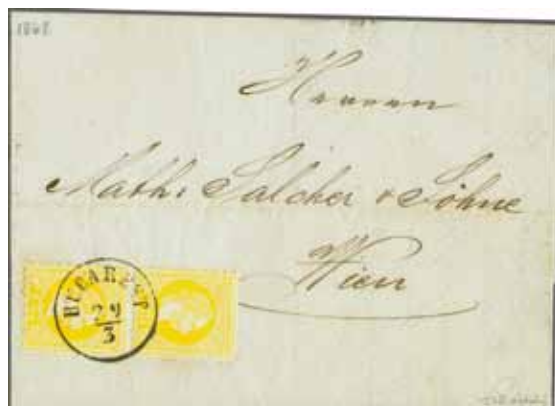 1868
Herren
Math: Salcher & Söhne
Wien
BUCAREST
29
3